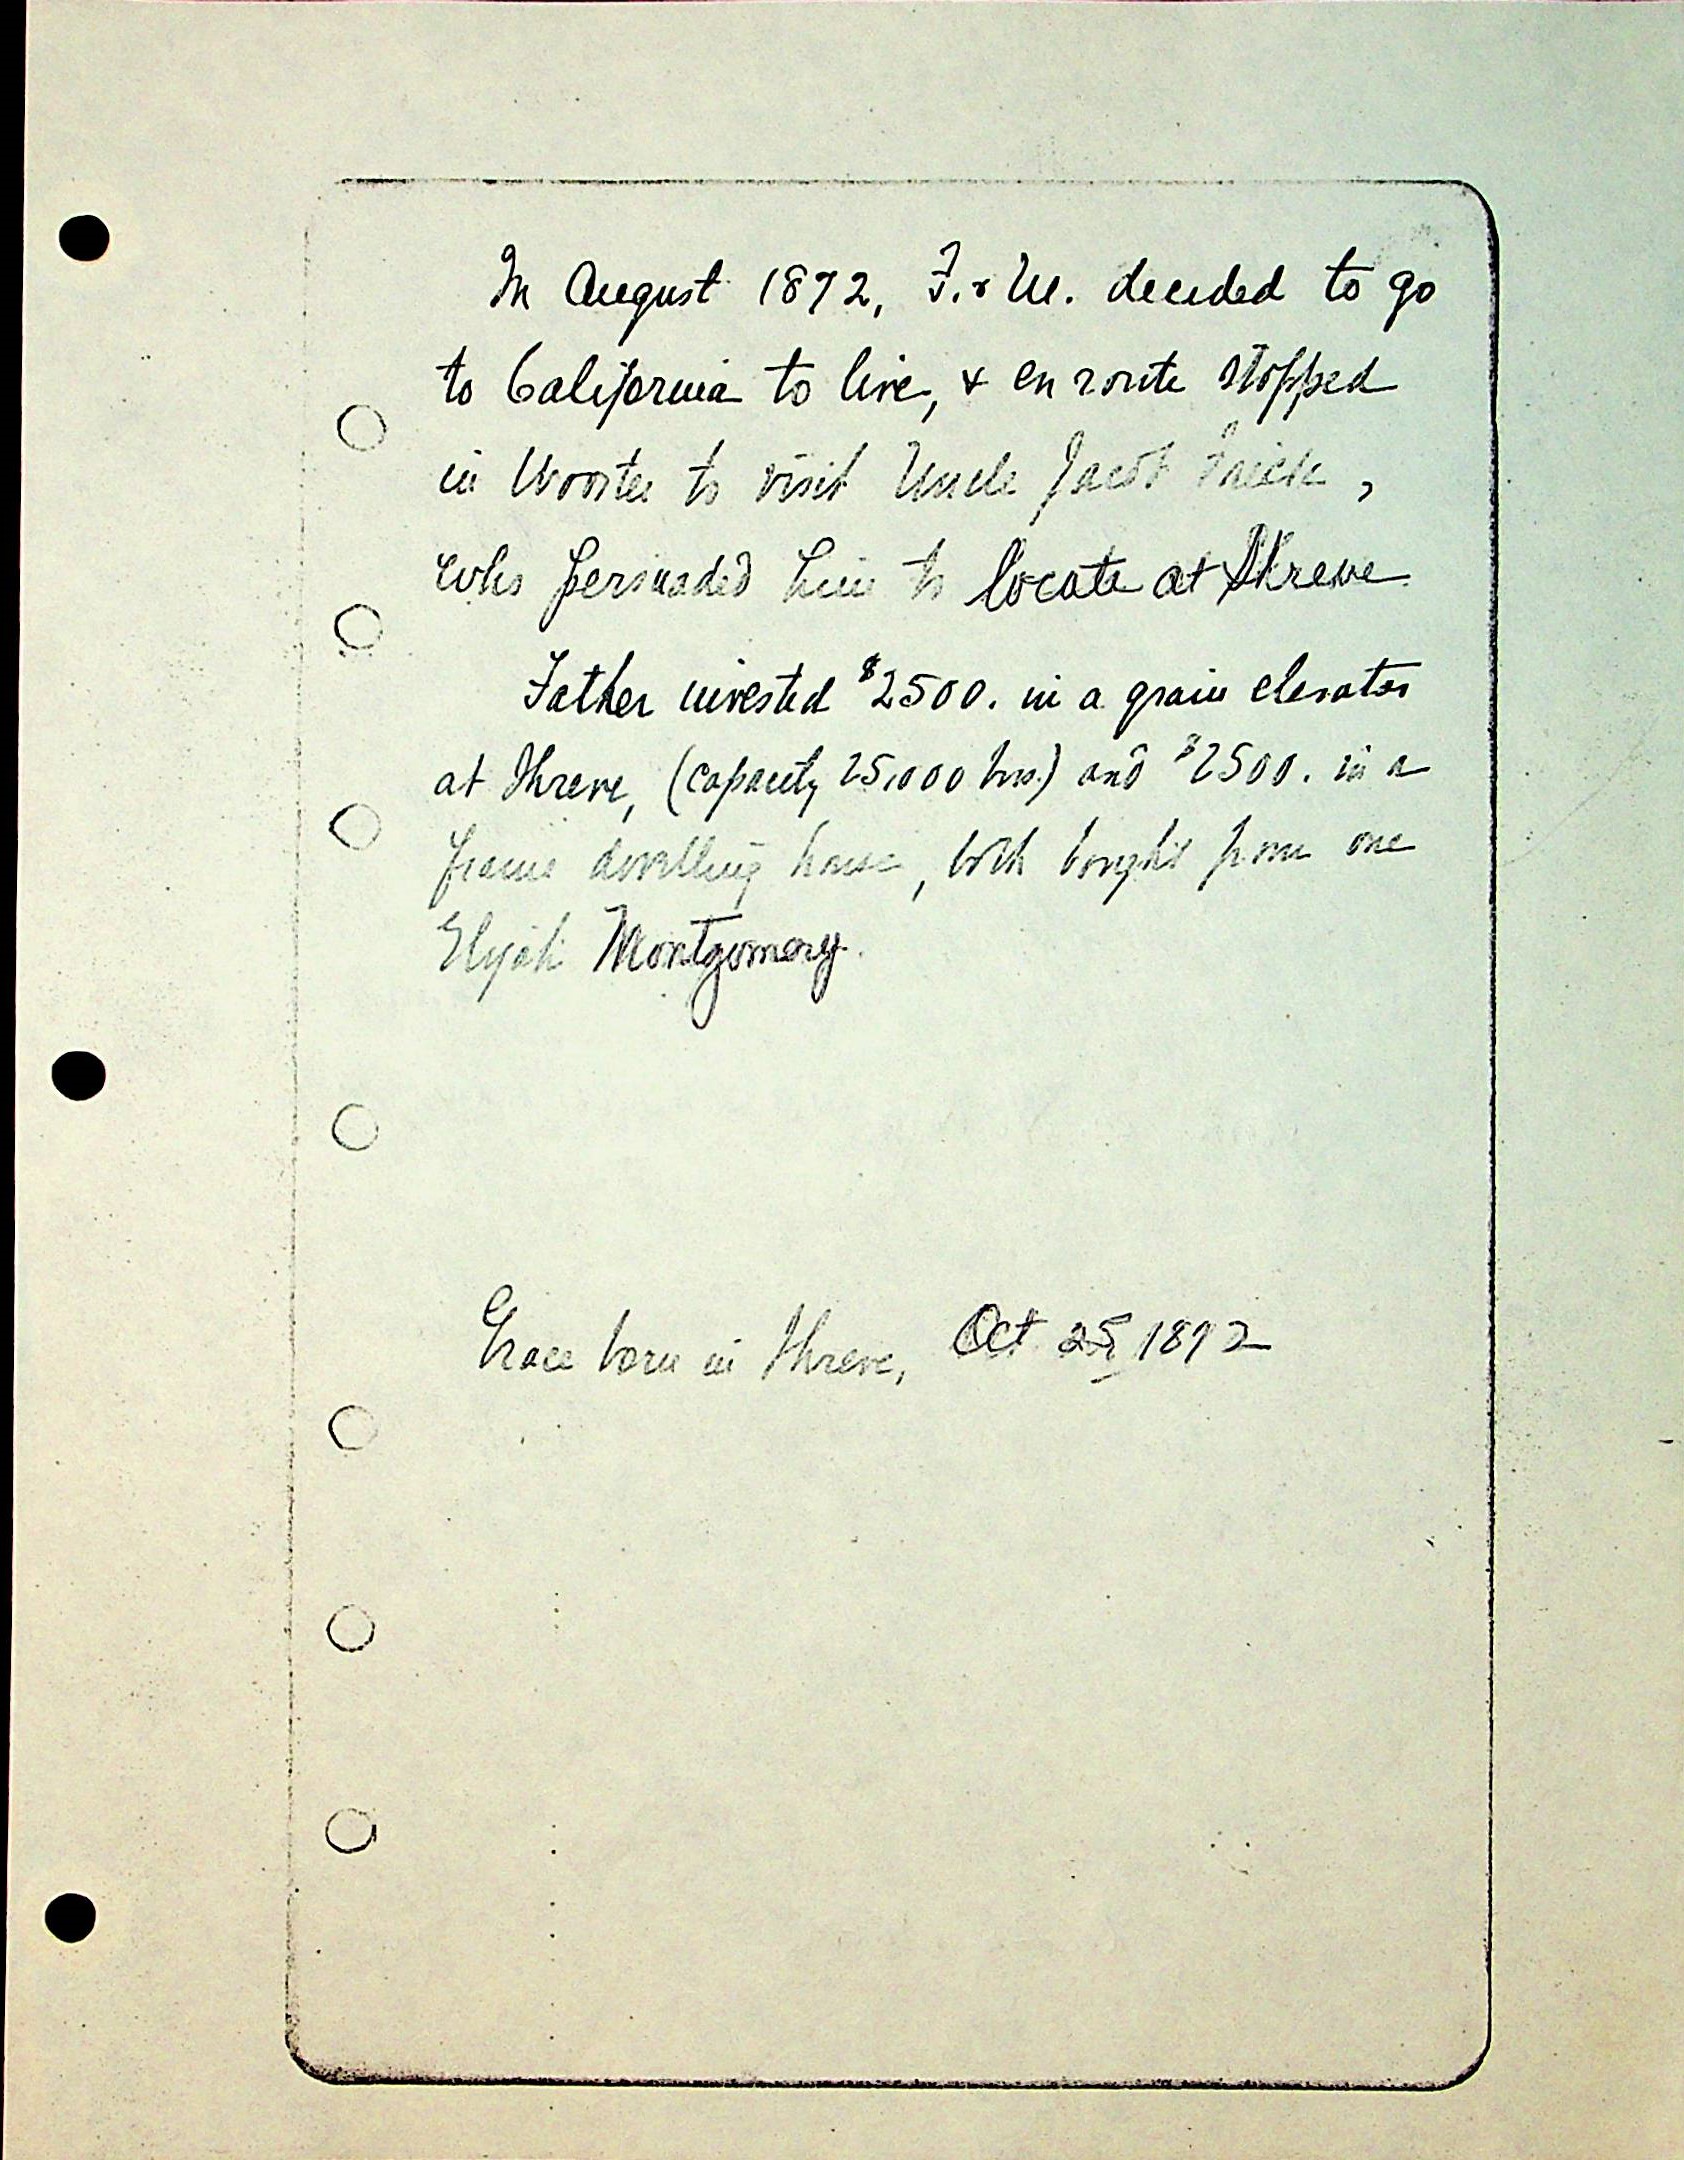 In August 1872, F. & M. decided to go
to California to live, & en route stopped
in Wooster to visit Uncle Jacob Frick,
who persuaded him to locate at Shreve
Father invested $2500. in a grain elevator
at Shreve, (capacity 25,000 bus.) and $2500. in a
frame dwelling house, both bought from one
Elijah Montgomery.
Grace born in Shreve, Oct 25, 1872